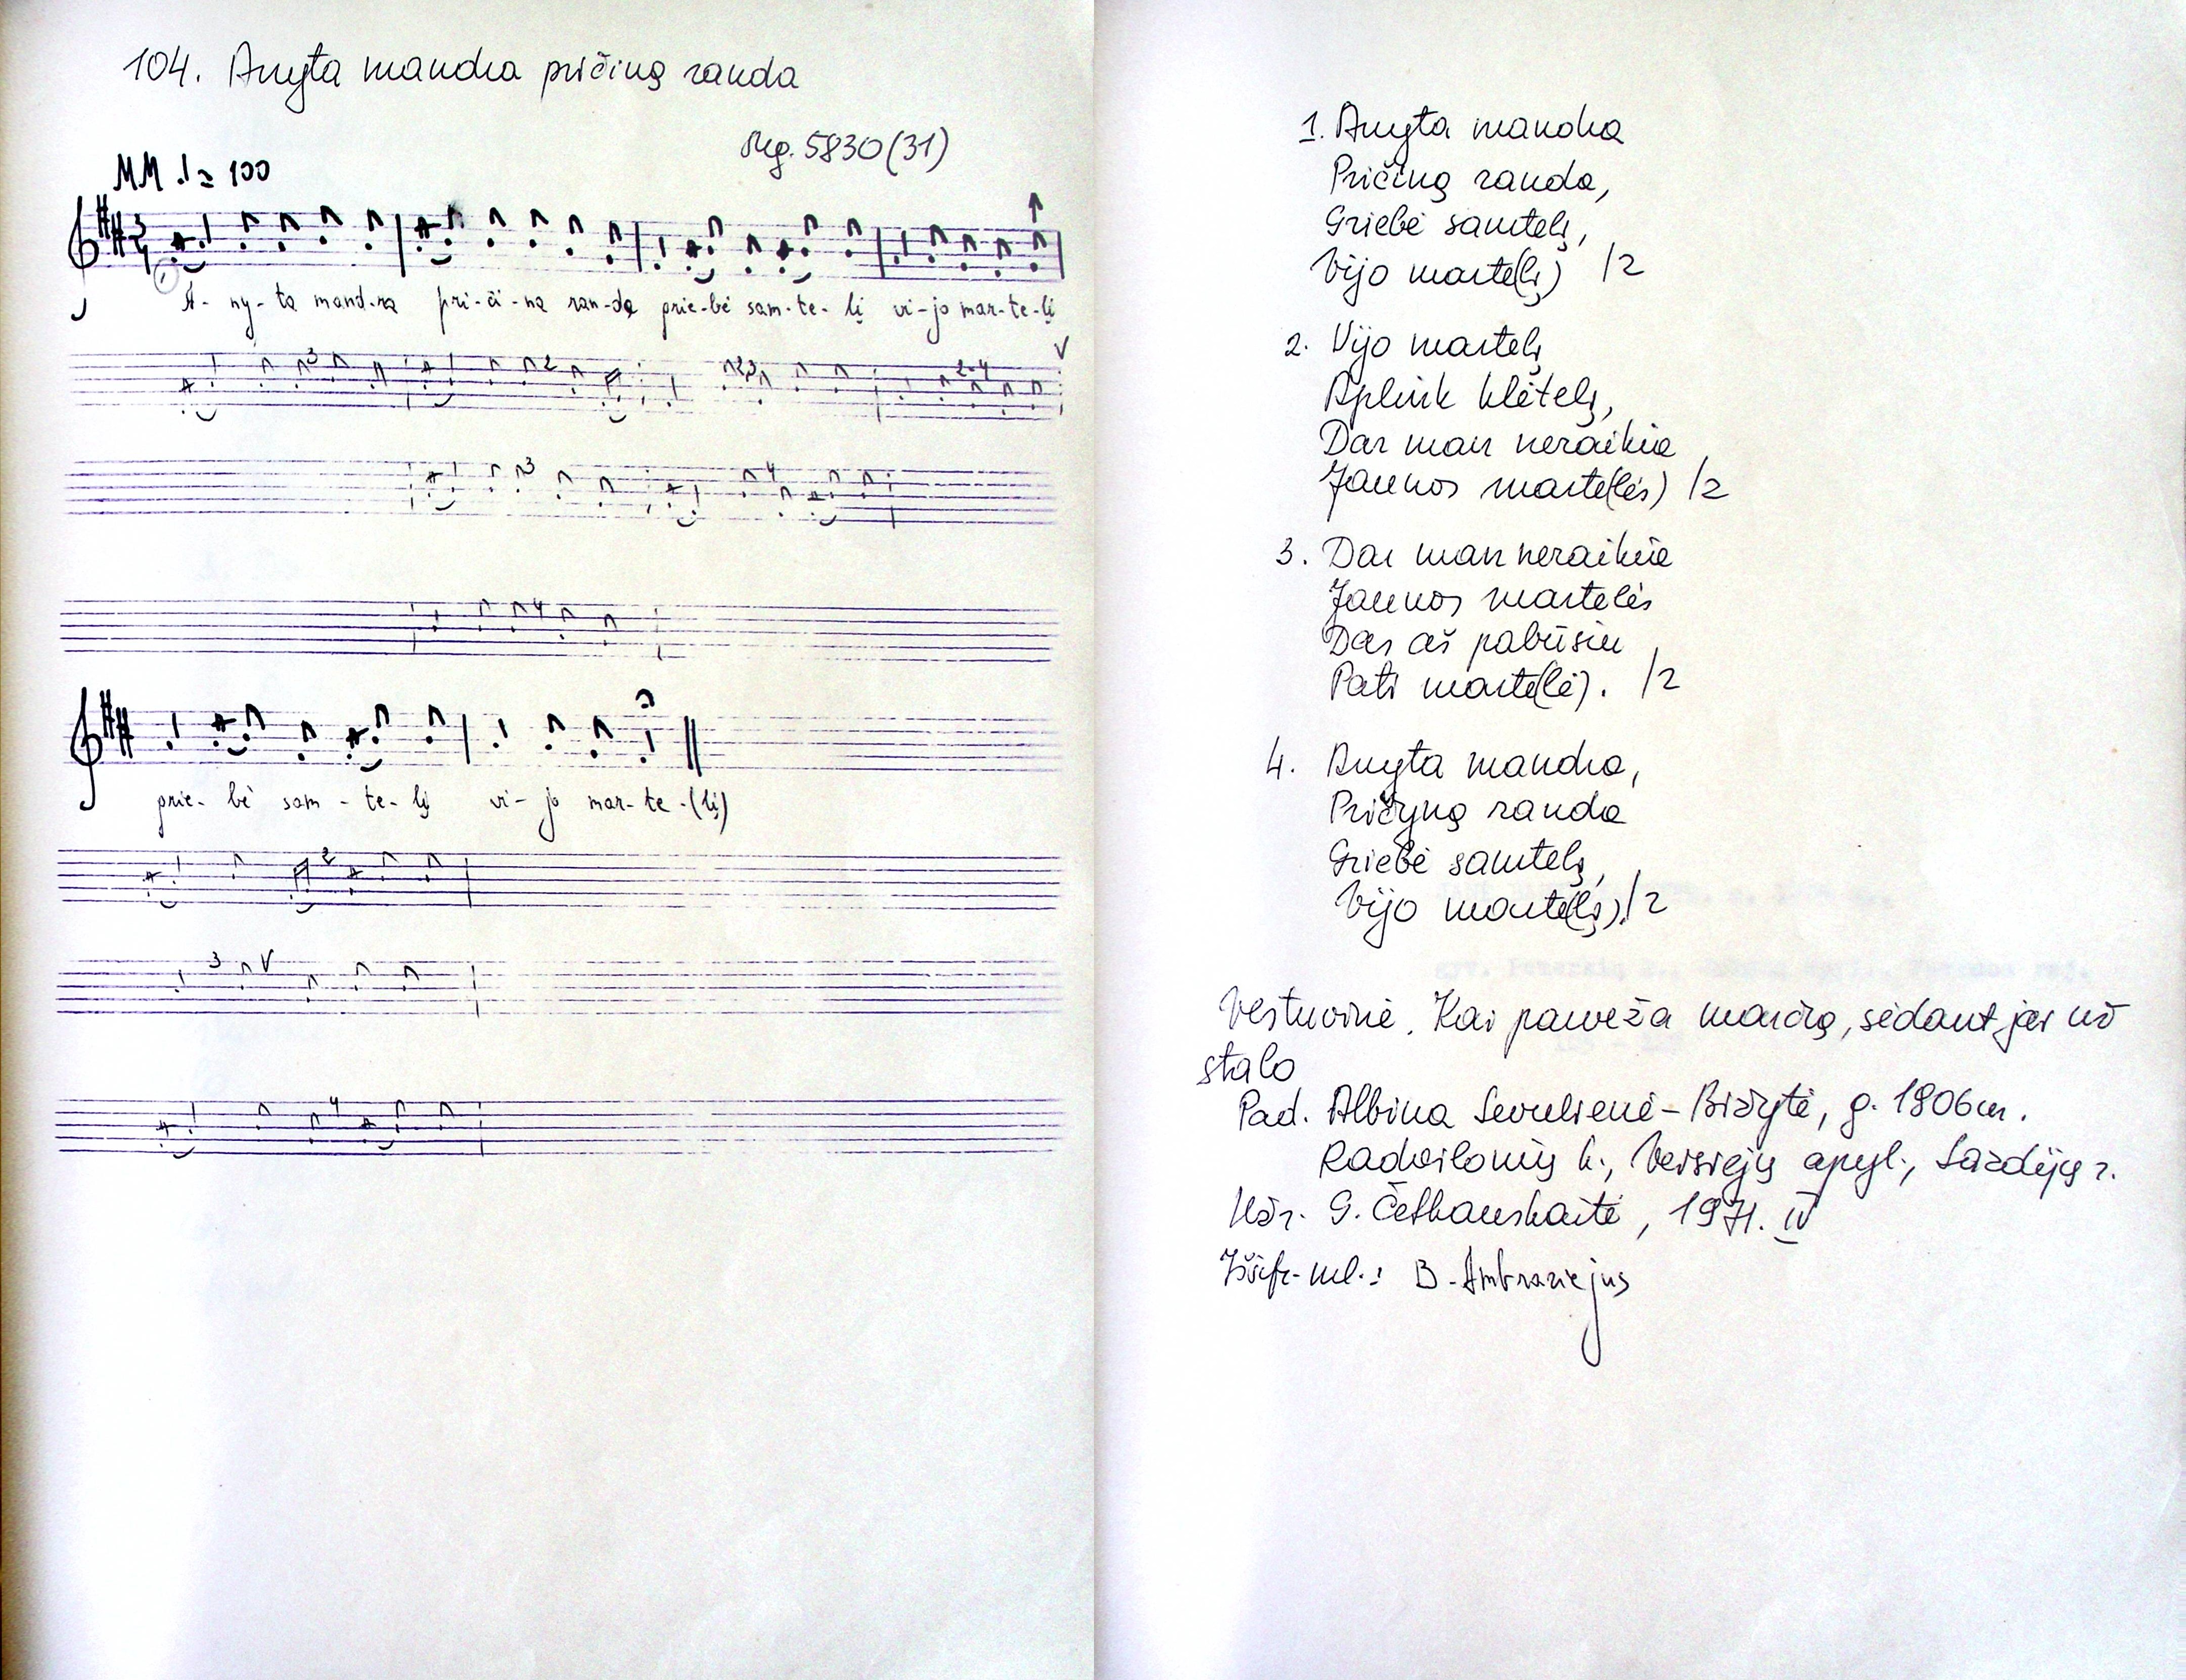 104. Anyta mandra pričiną randa
Mg. 5830 (31)
MM ♩ = 100
A - ny - ta mand-ra pri - či - ną ran - da prie - bė sam - te - lį vi - jo mar - te - lį
prie - bė sam - te - lį vi - jo mar - te - (lį)
1. Anyta mandra
Pričiną randa,
Griebė samtelį,
Vijo marte(lį) /2
2. Vijo martelį
Aplink klėtelį,
Dar man neraikia
Jaunos marte(lės) /2
3. Dar man neraikia
Jaunos martelės
Dar aš pabūsiu
Pati marte(lė). /2
4. Anyta mandra,
Pričyną randa
Griebė samtelį,
Vijo marte(lį). /2
Vestuvinė. Kai parveža marčią, sėdant jai už
stalo
Pad. Albina -, g. 1906 m.
k., Veisiejų apyl., Lazdijų r.
Užr. G. Četkauskaitė, 1971. IV
Iššifr. mel.: B. Ambraziejus